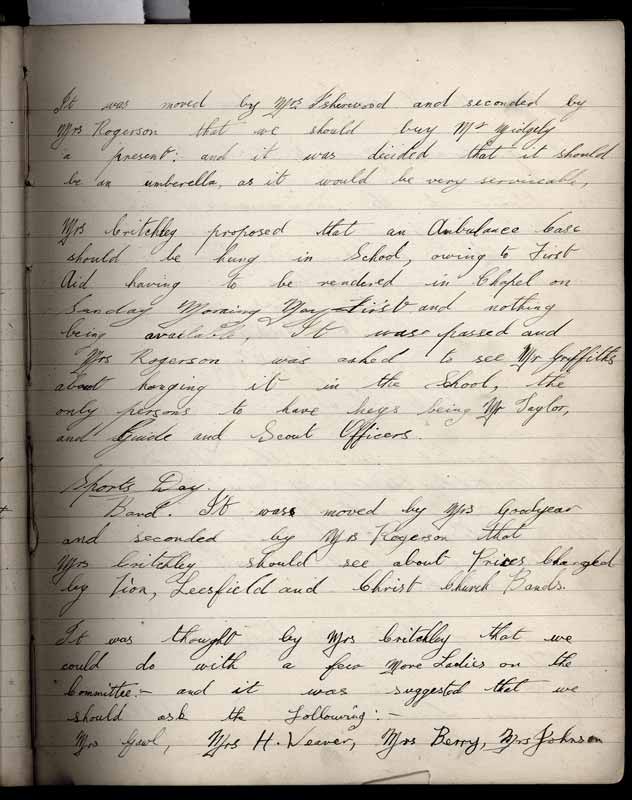 It was moved by Mrs Isherwood and seconded by
Mrs Rogerson that we should buy Mr Midgely
a present: and it was decided that it should
be an umberella, as it would be very serviceable,
Mrs Critchley proposed that an Anbulance Case
should be hung in School, owing to First
Aid having to be rendered in Chapel on
Sunday Morning May First and nothing
being available, It was passed and
Mrs Rogerson was asked to see Mr Griffiths
about hanging it in the School, the
only persons to have keys being Mr Taylor,
and Guide and Scout Officers.
Sports Day.
Band. It was moved by Mrs Goodyear
and seconded by Mrs Rogerson that
Mrs Critchley should see about Prices Changed
by Tion, Leesfield and Christ Church Bands.
It was thought by Mrs Critchley that we
could do with a few More Ladies on the
Committee:- and it was suggested that we
should ask the following:-
Mrs H. Weaver, Mrs Berry, Mrs Johnson